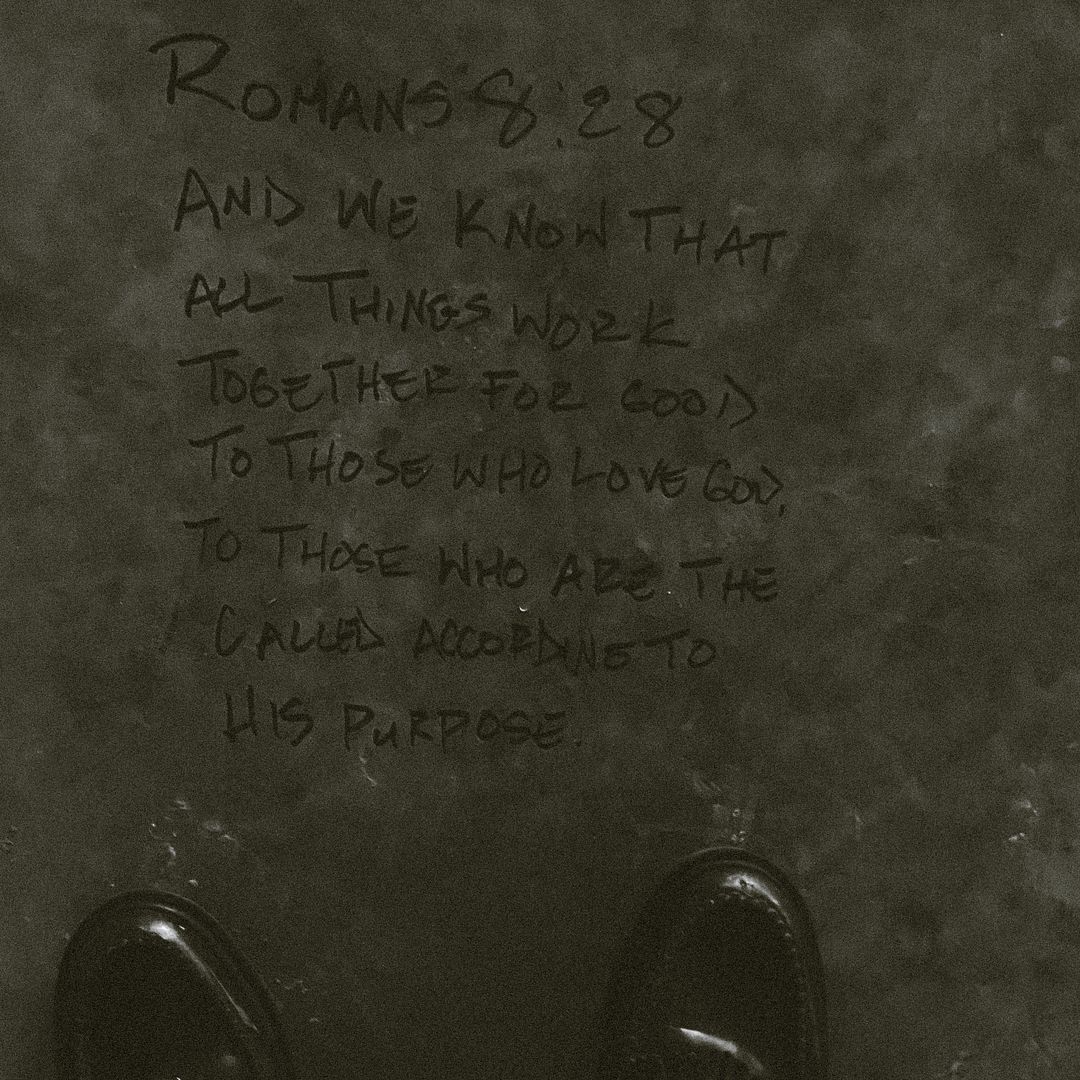 ROMANS 8:28
AND WE KNOW THAT
ALL THINGS WORK
TOGETHER FOR GOOD
TO THOSE WHO LOVE GOD,
TO THOSE WHO ARE THE
CALLED ACCORDING TO
HIS PURPOSE.